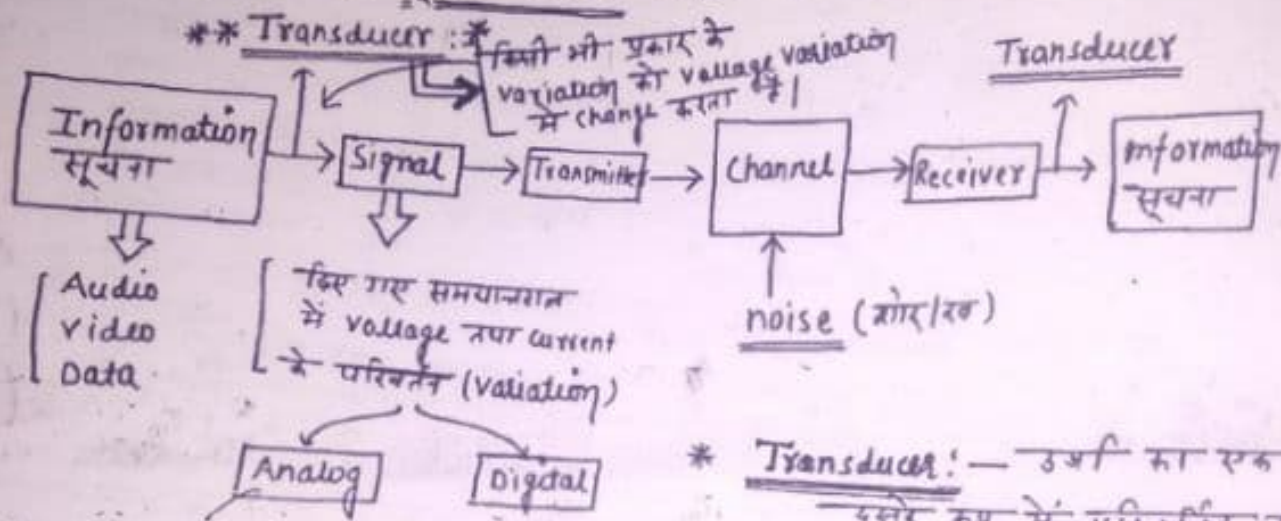 ** Transducer :*
किसी भी प्रकार के
variation को vallage variation
में change करता है।
Transducer
Information
सूचना
Signal
Transmitter
Channel
Receiver
Information
सूचना
Audio
Video
Data
दिए गए समयान्तराल
में vallage तथा current
के परिवर्तन (variation)
noise (शोर/रव)
Analog
Digital
* Transducer: — उर्जा का एक
दूसरे रूप में